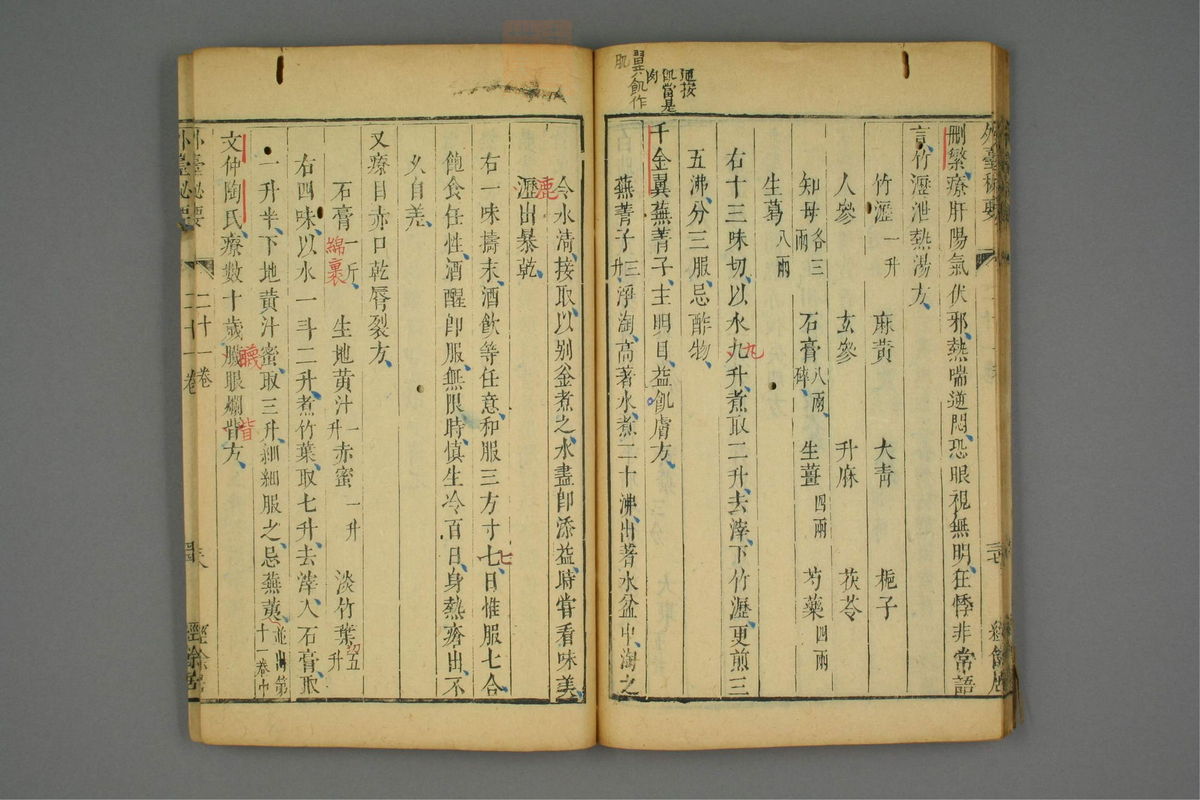 翼飢作
肌
延按
飢當是
肉
外臺秘要
刪繁療肝陽氣伏邪熱喘逆悶恐眼視無明狂悸非常語
言竹瀝泄熱湯方
竹瀝一升 麻黃 大青 梔子
人參 玄參 升麻 茯苓
知母各三兩 石膏八兩碎 生薑四兩 芍藥四兩
生葛八兩
右十三味切以水九升煮取二升去滓下竹瀝更煎三
五沸分三服忌酢物
千金翼蕪菁子主明目益飢膚方
蕪菁子三升淨淘高著水煮二十沸出著水盆中淘之
令水清接取以别釜煮之水盡卽添益時嘗看味美
瀝出暴乾
漉
右一味擣末酒飲等任意和服三方寸七日惟服七合
七
飽食任性酒醒卽服無限時慎生冷百日身熱瘡出不
久自差
又療目赤口乾唇裂方
石膏一斤 生地黃汁一升 赤蜜一升 淡竹葉切五升
綿裹
右四味以水一斗二升煮竹葉取七升去滓入石膏取
一升半下地黃汁蜜取三升細細服之忌蕪荑並出第十一卷中
文仲陶氏療數十歲膿眼爛眥方
䁾
眥
外臺秘要 二十一卷 經餘居